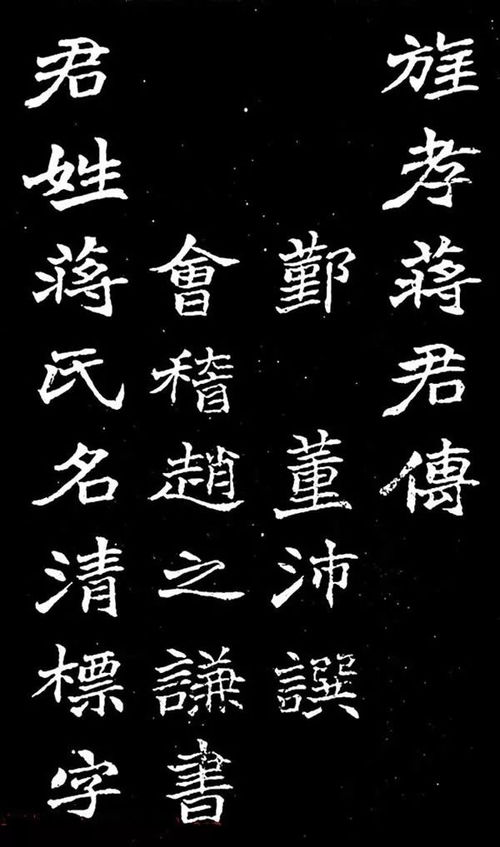 旌孝蔣君傳
鄞 董沛譔
會稽趙之謙書
君姓蔣氏名清標字